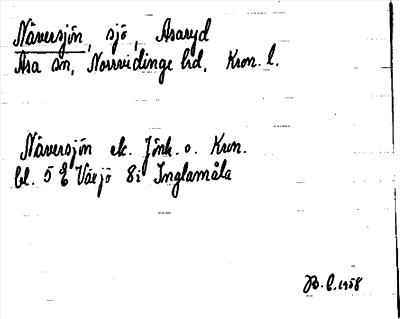 Näversjön, sjö, Asaryd
Asa sn, Norrvidinge hd, Kron. l.
Näversjön ek. Jönk. o. Kron.
bl. 5 E Växjö 8i Inglamåla
B. E. 1958